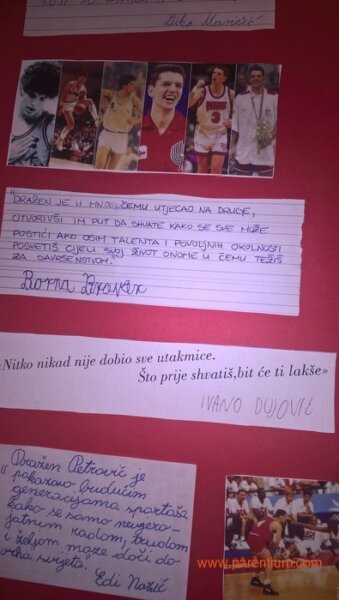 Luka Maričić
"DRAŽEN JE U MNOGOČEMU UTJECAO NA DRUGE,
OTVORIVŠI IM PUT DA SHVATE KAKO SE SVE MOŽE
POSTIĆI AKO OSIM TALENTA I POVOLJNIH OKOLNOSTI
POSVETIŠ CIJELI SVOJ ŽIVOT ONOME U ČEMU TEŽIŠ
ZA SAVRŠENSTVOM."
Borna Brovan
«Nitko nikad nije dobio sve utakmice.
Što prije shvatiš,bit će ti lakše»
IVANO DUJOVIĆ
Dražen Petrović je
"pokazao budućim
generacijama sportaša
kako se samo nevjero-
jatnim radom, trudom
i željom može doći do
vrha svijeta."
Edi Nažić
3
www.parentium.com